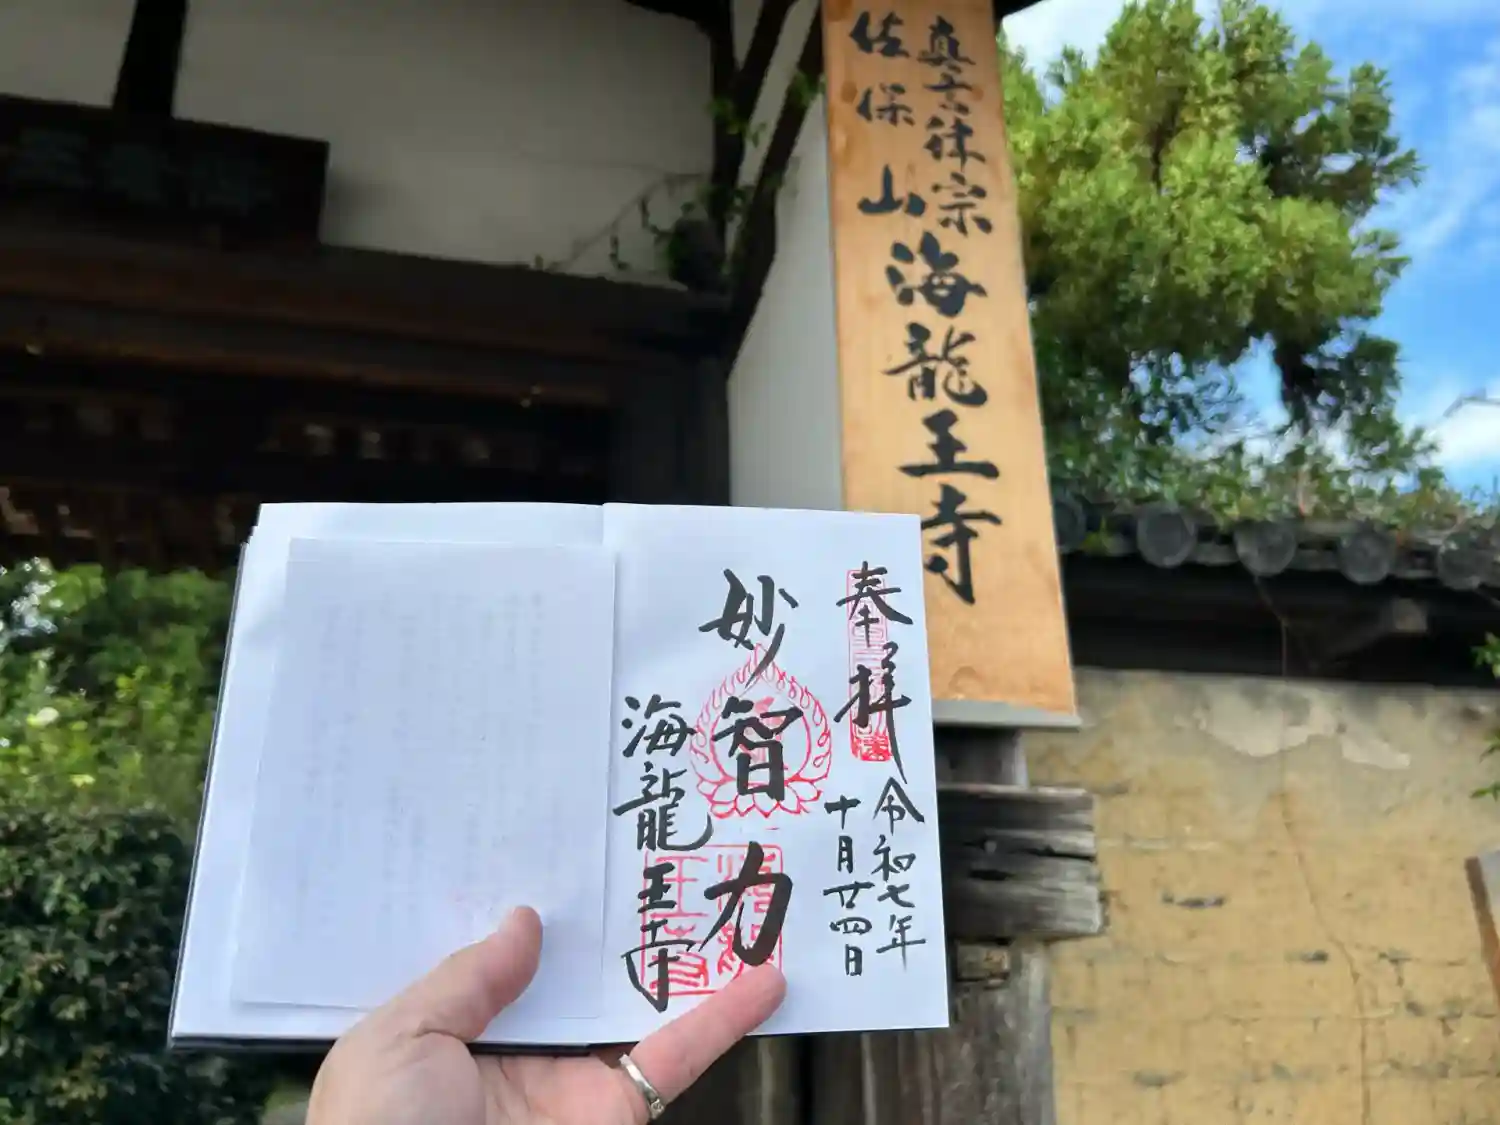 真言律宗
佐保山
海龍王寺
奉拝
令和七年
十月廿四日
妙智力
海龍王寺